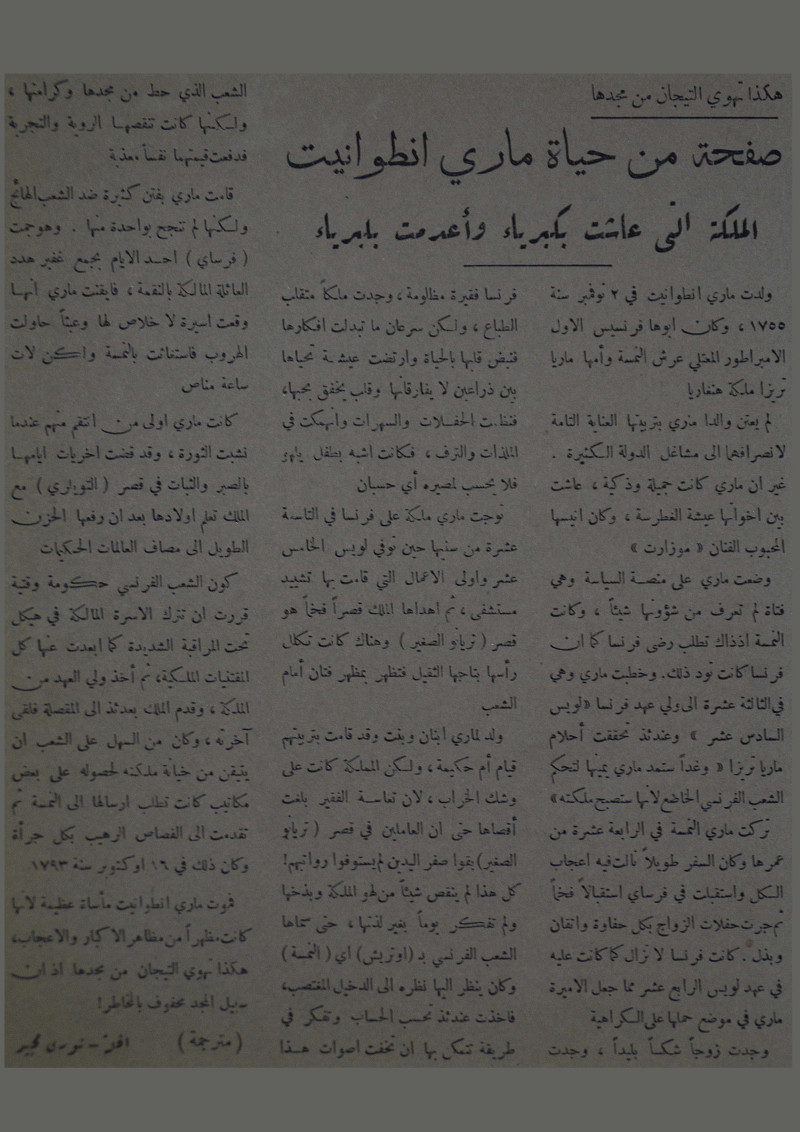 هكذا تهوي التيجان من مجدها
صفحة من حياة ماري انطوانيت
الملكة التي عاشت بكبرياء وأعدمت بكبرياء
ولدت ماري انطوانيت في ٢ نوفمبر سنة
١٧٥٥ ، وكان ابوها فرنسيس الاول
الامبراطور المعتلي عرش النمسة وأمها ماريا
تريزا ملكة هنغاريا
لم يعتن والدا ماري بتربيتها العناية التامة
لانصرافهما الى مشاغل الدولة الكثيرة .
غير ان ماري كانت جميلة وذكية ، عاشت
بين اخواتها عيشة الغطرسة ، وكان انيسها
المحبوب الفنان « موزارت »
وضعت ماري على منصة السياسة وهي
فتاة لم تعرف من شؤونها شيئاً ، وكانت
النمسة اذذاك تطلب رضى فرنسا كما ان
فرنسا كانت تود ذلك. وخطبت ماري وهي
في الثالثة عشرة الى ولي عهد فرنسا « لويس
السادس عشر » وعندئذ تحققت أحلام
ماريا تريزا « وغداً ستمد ماري يمينها لتحكم
الشعب الفرنسي الخاضع لأنها ستصبح ملكته»
تركت ماري النمسة في الرابعة عشرة من
عمرها وكان السفر طويلاً نالت فيه اعجاب
الكل واستقبلت في فرساي استقبالاً فخماً
ثم جرت حفلات الزواج بكل حفاوة واتقان
وبذل . كانت فرنسا لا تزال كما كانت عليه
في عهد لويس الرابع عشر مما جعل الاميرة
ماري في موضع حملها على الكراهية
وجدت زوجاً شكساً بليداً ، وجدت
فرنسا فقيرة مظلومة ، وجدت ملكاً متقلب
الطباع ، ولكن سرعان ما تبدلت افكارها
فنبض قلبها بالحياة وارتضت عيشة تحياها
بين ذراعين لا يفارقانها وقلب يخفق بحبها،
فنظمت الحفلات والسهرات وانهمكت في
الملذات والترف ، فكانت اشبه بطفل يلهو
فلا يحسب لمصيره أي حسبان
توجت ماري ملكة على فرنسا في التاسعة
عشرة من سنيها حين توفي لويس الخامس
عشر واولى الاعمال التي قامت بها تشييد
مستشفى ، ثم اهداها الملك قصراً فخماً هو
قصر ( تريانو الصغير ) وهناك كانت تكلل
رأسها بتاجها الثقيل فتظهر بمظهر فتان أمام
الشعب
ولد لماري ابنان وبنت وقد قامت بتربيتهم
قيام أم حكيمة ، ولكن المملكة كانت على
وشك الخراب ، لان تعاسة الفقير بلغت
أقصاها حتى ان العاملين في قصر ( تريانو
الصغير) بقوا صفر اليدين لم يستوفوا رواتبهم!
كل هذا لم ينقص شيئاً من لهو الملكة وبذخها
ولم تفتكر يوماً بغير لذتها ، حتى سماها
الشعب الفرنسي بـ (اوتريش) اي ( النمسة )
وكان ينظر اليها نظره الى الدخيل المغتصب،
فاخذت عندئذ تحسب الحساب وتفكر في
طريقة تتمكن بها ان تخفت اصوات هذا
الشعب الذي حط من مجدها وكرامتها ،
ولكنها كانت تنقصها الروية والتجربة
فدفعت قيمتهما نفساً معذبة
قامت ماري بفتن كثيرة ضد الشعب الهائج
ولكنها لم تنجح بواحدة منها . وهوجمت
( فرساي ) احد الايام بجمع غفير هدد
العائلة المالكة بالنقمة ، فايقنت ماري انها
وقعت اسيرة لا خلاص لها وعبثاً حاولت
الهروب فاستغاثت بالنمسة ولكن لات
ساعة مناص
كانت ماري اولى من انتقم منهم عندما
نشبت الثورة ، وقد قضت اخريات ايامها
بالصبر والثبات في قصر ( التويلري ) مع
الملك تعلم اولادها بعد ان رفعها الحزن
الطويل الى مصاف العالمات الحكيمات
كون الشعب الفرنسي حكومة وقتية
قررت ان تترك الاسرة المالكة في هيكل
تحت المراقبة الشديدة كما ابعدت عنها كل
المقتنيات الملكية، ثم أخذ ولي العهد من
الملكة ، وقدم الملك بعدئذ الى المقصلة فلقي
آخرته ، وكان من السهل على الشعب ان
يتيقن من خيانة ملكته لحصوله على بعض
مكاتيب كانت تطلب ارسالها الى النمسة ثم
تقدمت الى القصاص الرهيب بكل جرأة
وكان ذلك في ١٦ اوكتوبر سنة ١٧٩٣
فموت ماري انطوانيت مأساة عظيمة لأنها
كانت مظهراً من مظاهر الاكبار والاعجاب،
هكذا تهوي التيجان من مجدها اذ ان
سبيل المجد محفوف بالمخاطر!
( مترجمة )